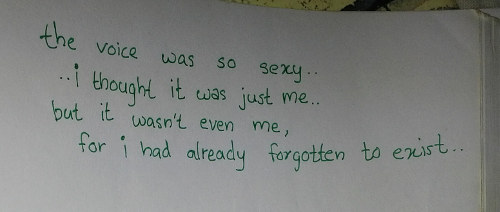 the voice was so sexy..
..i thought it was just me..
but it wasn't even me,
for i had already forgotten to exist..